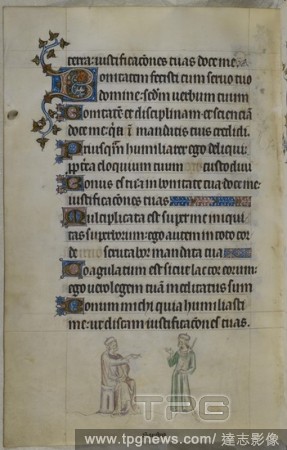 terra: iustificac̄ones tuas doce me.
Bonitatem fecisti cum seruo tuo
domine: scdm verbum tuum
Bonitatē et disciplinam et scientiā
doce me: q̄ a mandatis tuis credidi.
Priusq̄m humiliarer ego deliqui:
ppterea eloquium tuum ego custodiui
Bonus es tu: in bonitate tua doce me
iustificaciones tuas
Multiplicata est super me iniqui
tas superborum: ego autem in toto cor
de meo scrutabor mandata tua
Coagulatum est sicut lac cor eorum:
ego vero legem tuam meditatus sum
Bonum michi quia humiliasti
me: ut discam iustificac̄ones tuas.
TPG
www.tpgnews.com/ 達志影像